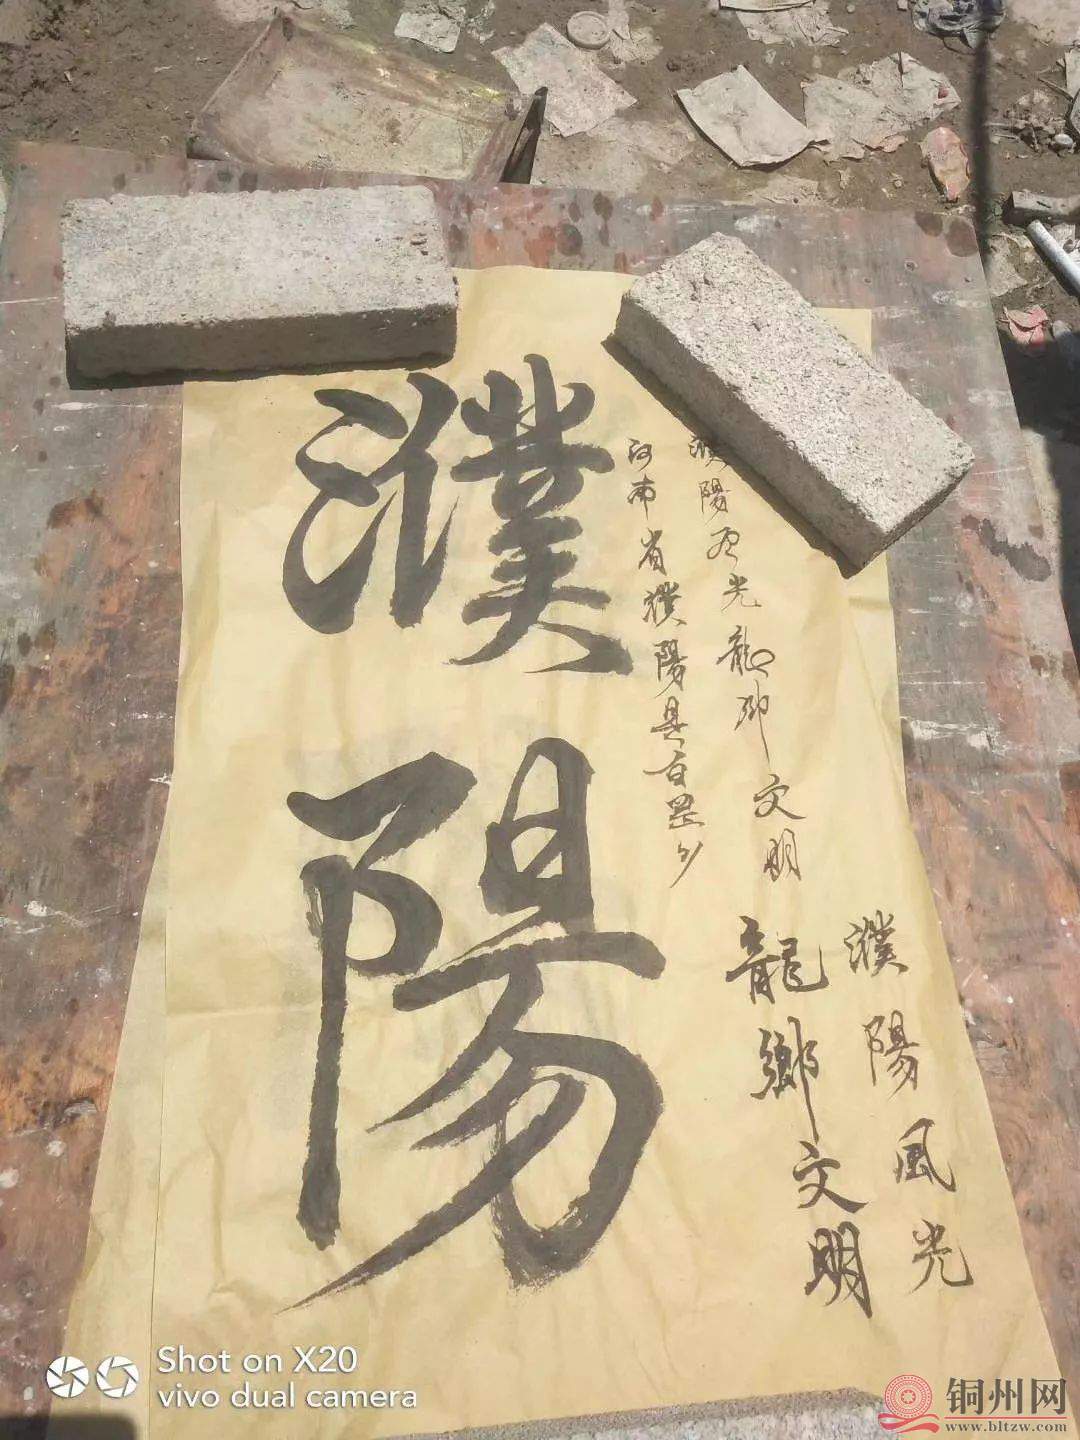 濮陽
濮陽風光
龍鄉文明
濮陽風光龍鄉文明
河南省濮陽县白罡乡
Shot on X20
vivo dual camera
铜州网
www.bltzw.com